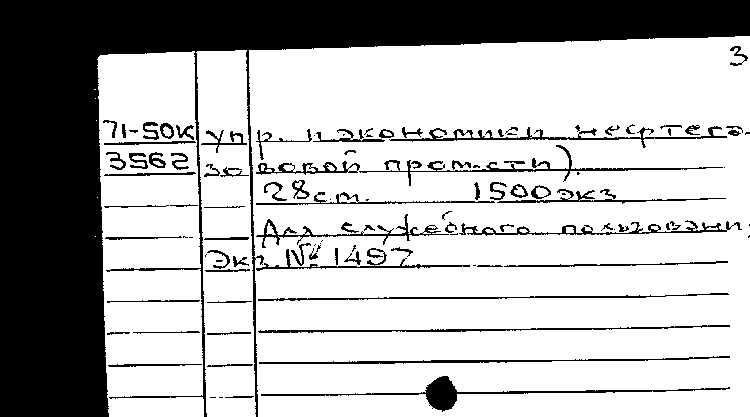 3
71-50К упр. и экономики нефтега-
3562 зовой пром-сти).
28см. 1500экз.
Для служебного пользования
Экз. № 1497.